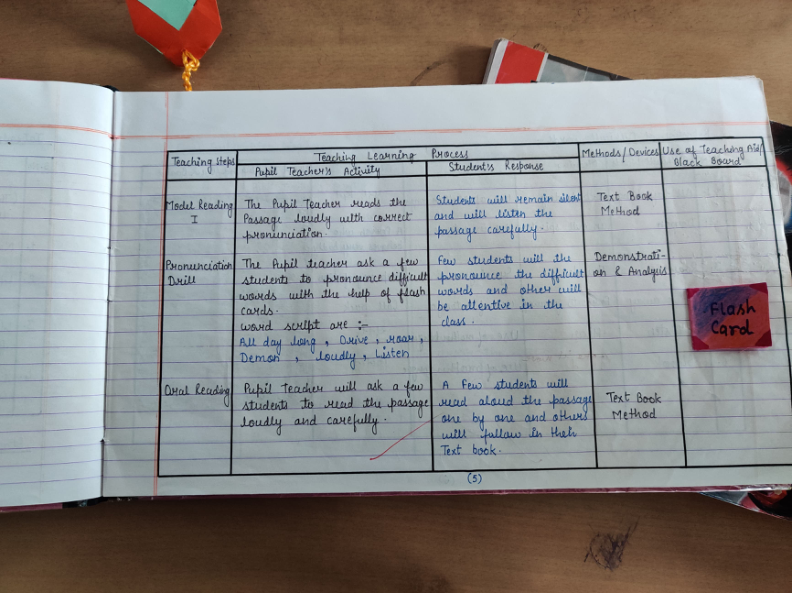 Teaching Steps
Teaching Learning Process
Pupil Teacher's Activity
Student's Response
Methods/Devices
Use of Teaching Aid/
Black Board
Model Reading
I
The Pupil Teacher reads the
Passage loudly with correct
pronunciation.
Students will remain silent
and will listen the
passage carefully.
Text Book
Method
Pronunciation
Drill
The Pupil teacher ask a few
students to pronounce difficult
words with the help of flash
cards.
word script are :-
All day long, Drive, roar,
Demon, loudly, Listen
Few students will the
pronounce the difficult
words and other will
be attentive in the
class.
Demonstrati-
on & Analysis
Flash
Card
Oral Reading
Pupil Teacher will ask a few
students to read the passage
loudly and carefully.
A Few students will
read aloud the passage
one by one and others
will follow in their
Text book.
Text Book
Method
(5)